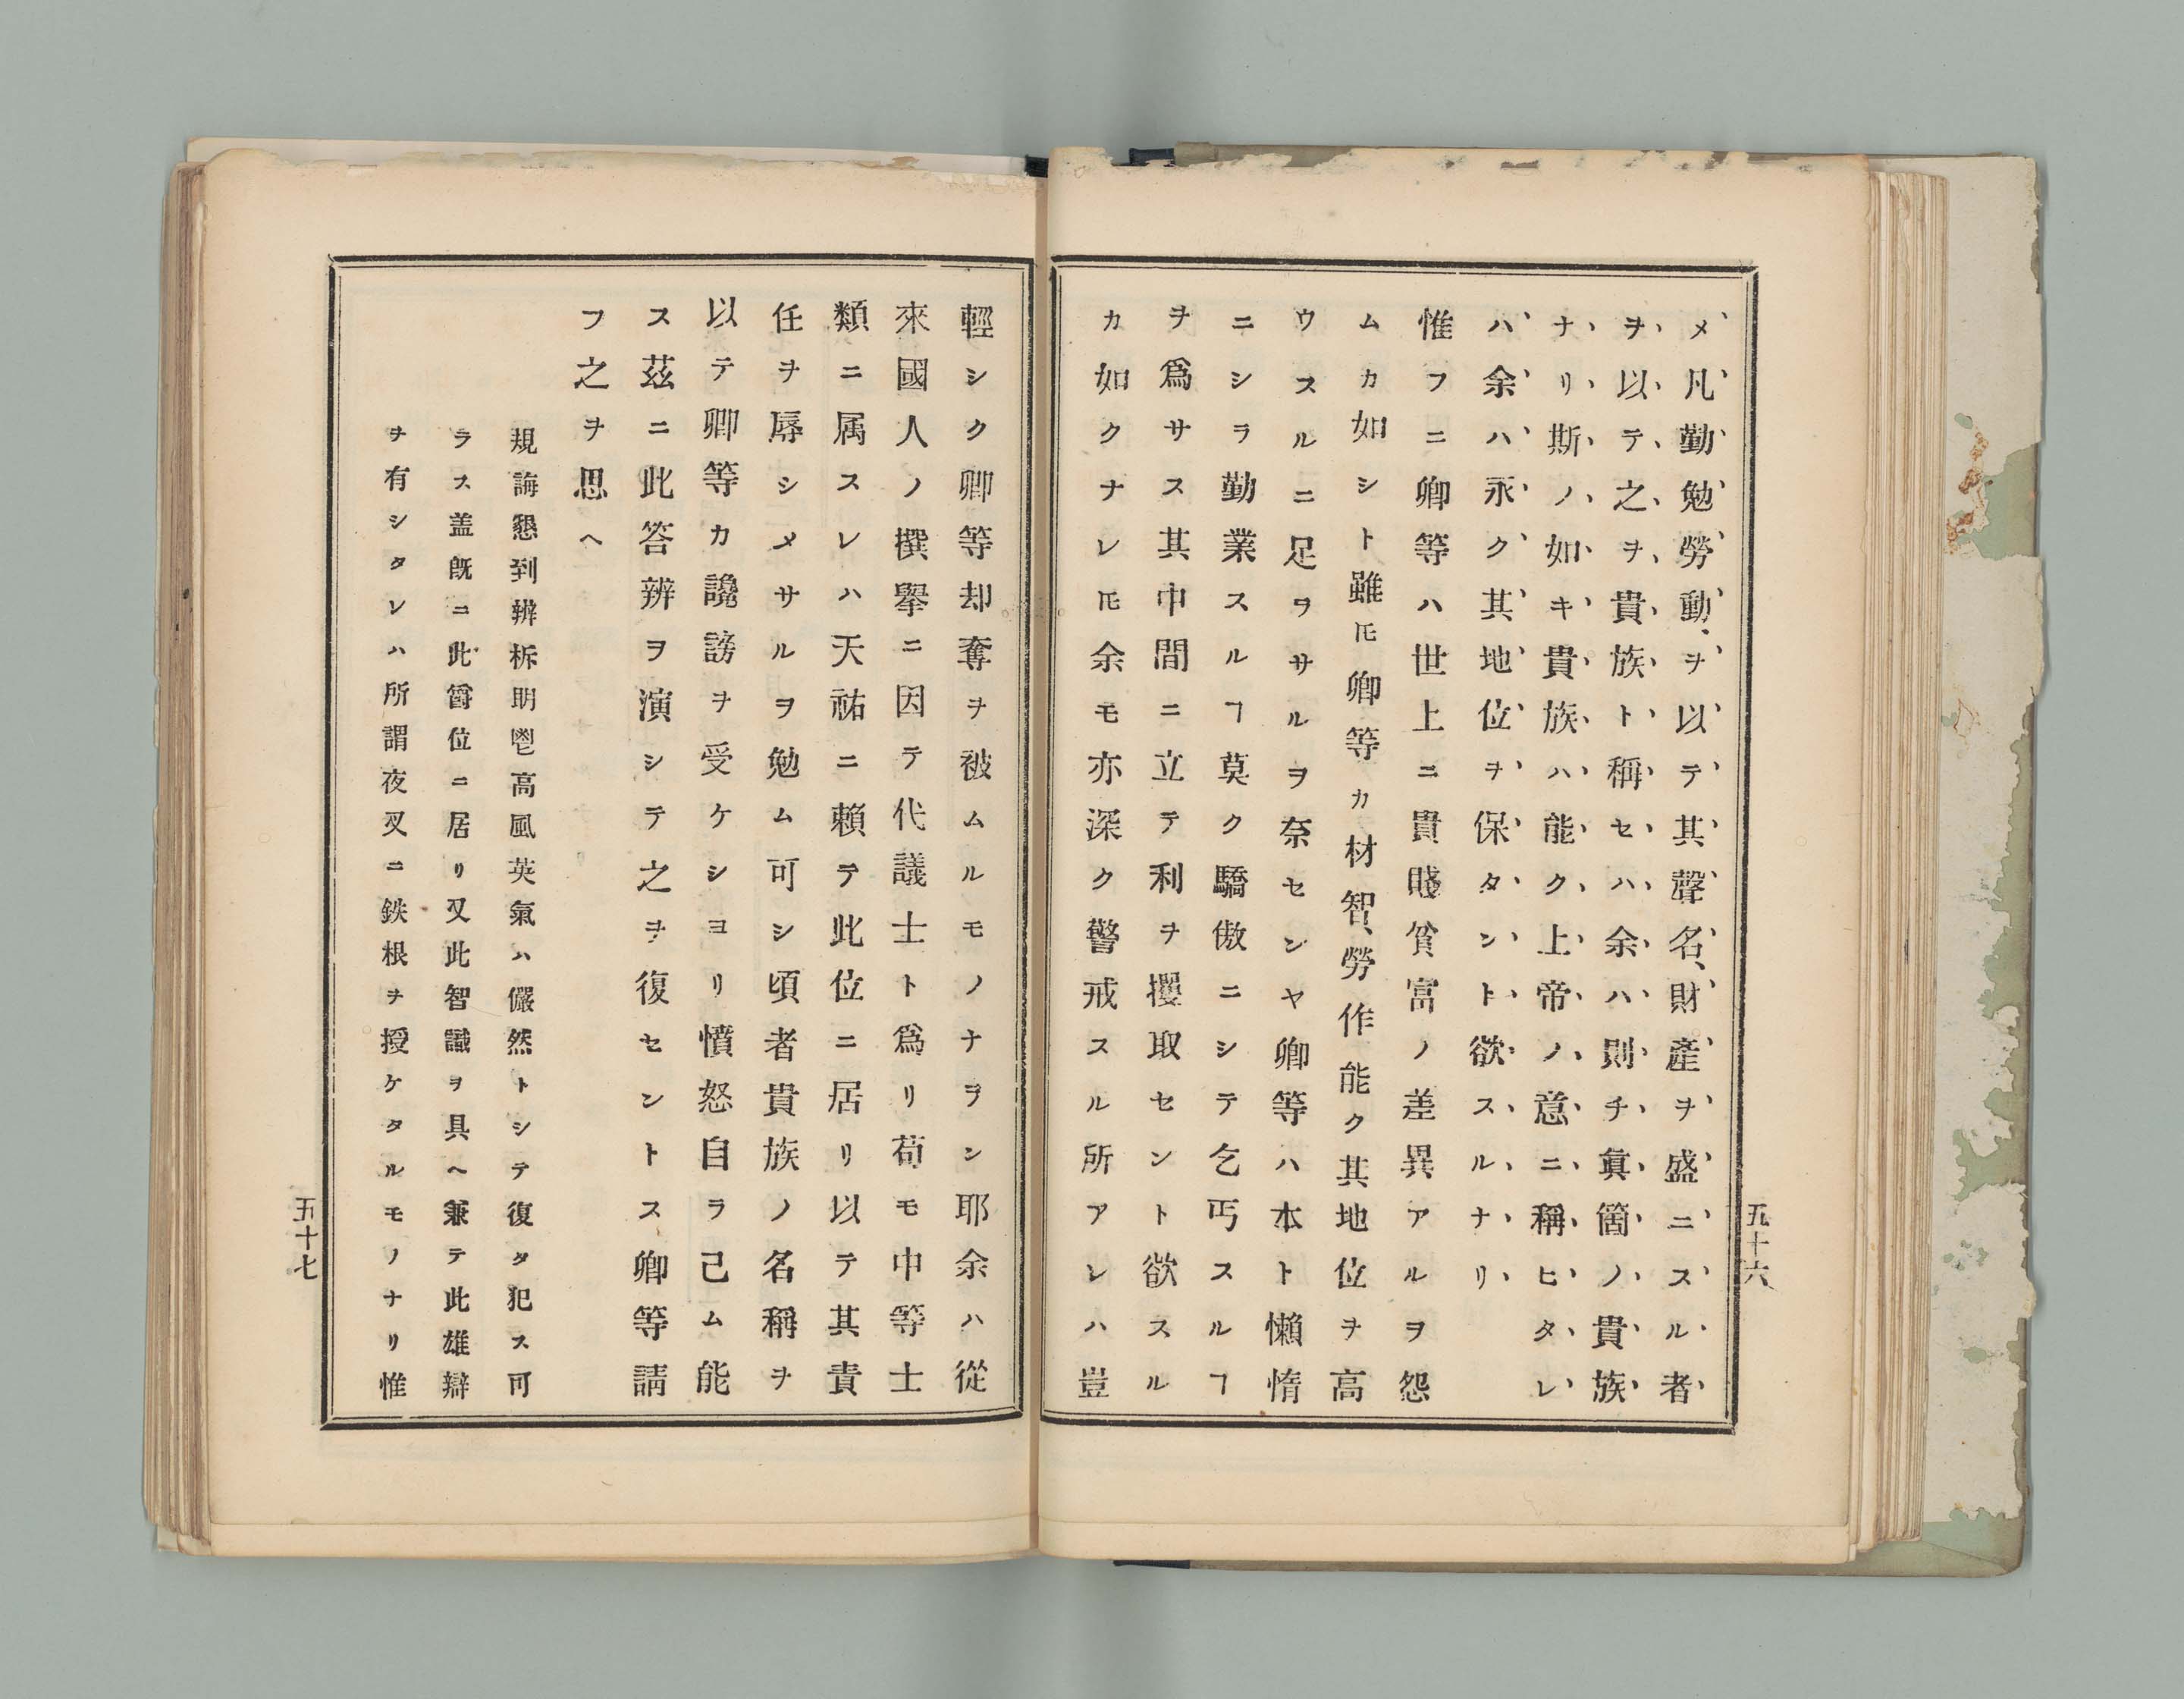 メ凡勤勉勞動、ヲ以テ其聲名、財產ヲ盛ニスル者
ヲ以テ之ヲ貴族ト稱セハ余ハ則チ眞箇ノ貴族
ナリ斯ノ如キ貴族ハ能ク上帝ノ意ニ稱ヒタレ
ハ余ハ永ク其地位ヲ保タント欲スルナリ
惟フニ卿等ハ世上ニ貴賤貧富ノ差異アルヲ怨
ムカ如シト雖𪜈卿等カ材智、勞作能ク其地位ヲ高
ウスルニ足ヲサルヲ奈センヤ卿等ハ本ト懶惰
ニシラ勤業スルヿ莫ク驕傲ニシテ乞丐スルヿ
ヲ爲サス其中間ニ立テ利ヲ攫取セント欲スル
カ如クナレ𪜈余モ亦深ク警戒スル所アレハ豈
五十六
輕シク卿等却奪ヲ被ムルモノナヲン耶余ハ從
來國人ノ撰擧ニ因テ代議士ト爲リ荀モ中等士
類ニ属スレハ天祐ニ賴テ此位ニ居リ以テ其責
任ヲ辱シメサルヲ勉ム可シ頃者貴族ノ名稱ヲ
以テ卿等カ讒謗ヲ受ケシヨリ憤怒自ラ己ム能
ス茲ニ此答辨ヲ演シテ之ヲ復セントス卿等請
フ之ヲ思ヘ
規誨懇到辨柝明鬯高風英氣ハ儼然トシテ復タ犯ス可
ラス盖既ニ此爵位ニ居リ又此智識ヲ具ヘ兼テ此雄辯
ヲ有シタレハ所謂夜叉ニ鉄根ヲ授ケタルモノナリ惟
五十七